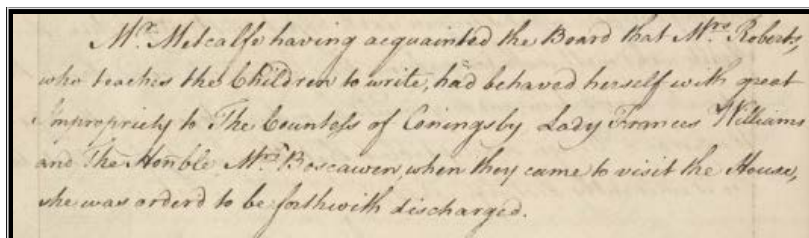 Mr. Metcalfe having acquainted the Board that Mrs. Roberts,
who teaches the Children to write, had behaved herself with great
Impropriety to The Countess of Coningsby Lady Frances Williams
and The Honble. Mrs. Boscawen, when they came to visit the House,
she was orderd to be forthwith discharged.